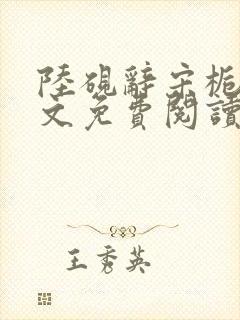 陸硯辭宋梔
文免費閱讀
王秀英